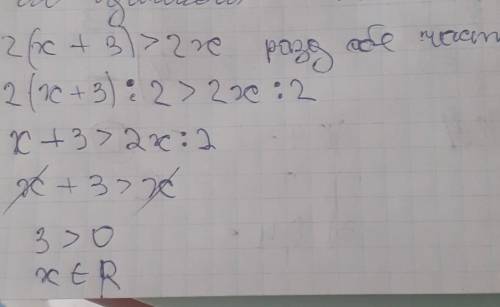 2(x + 3) > 2x разд обе част
2(x+3) : 2 > 2x : 2
x + 3 > 2x : 2
x + 3 > x
3 > 0
x ∈ R